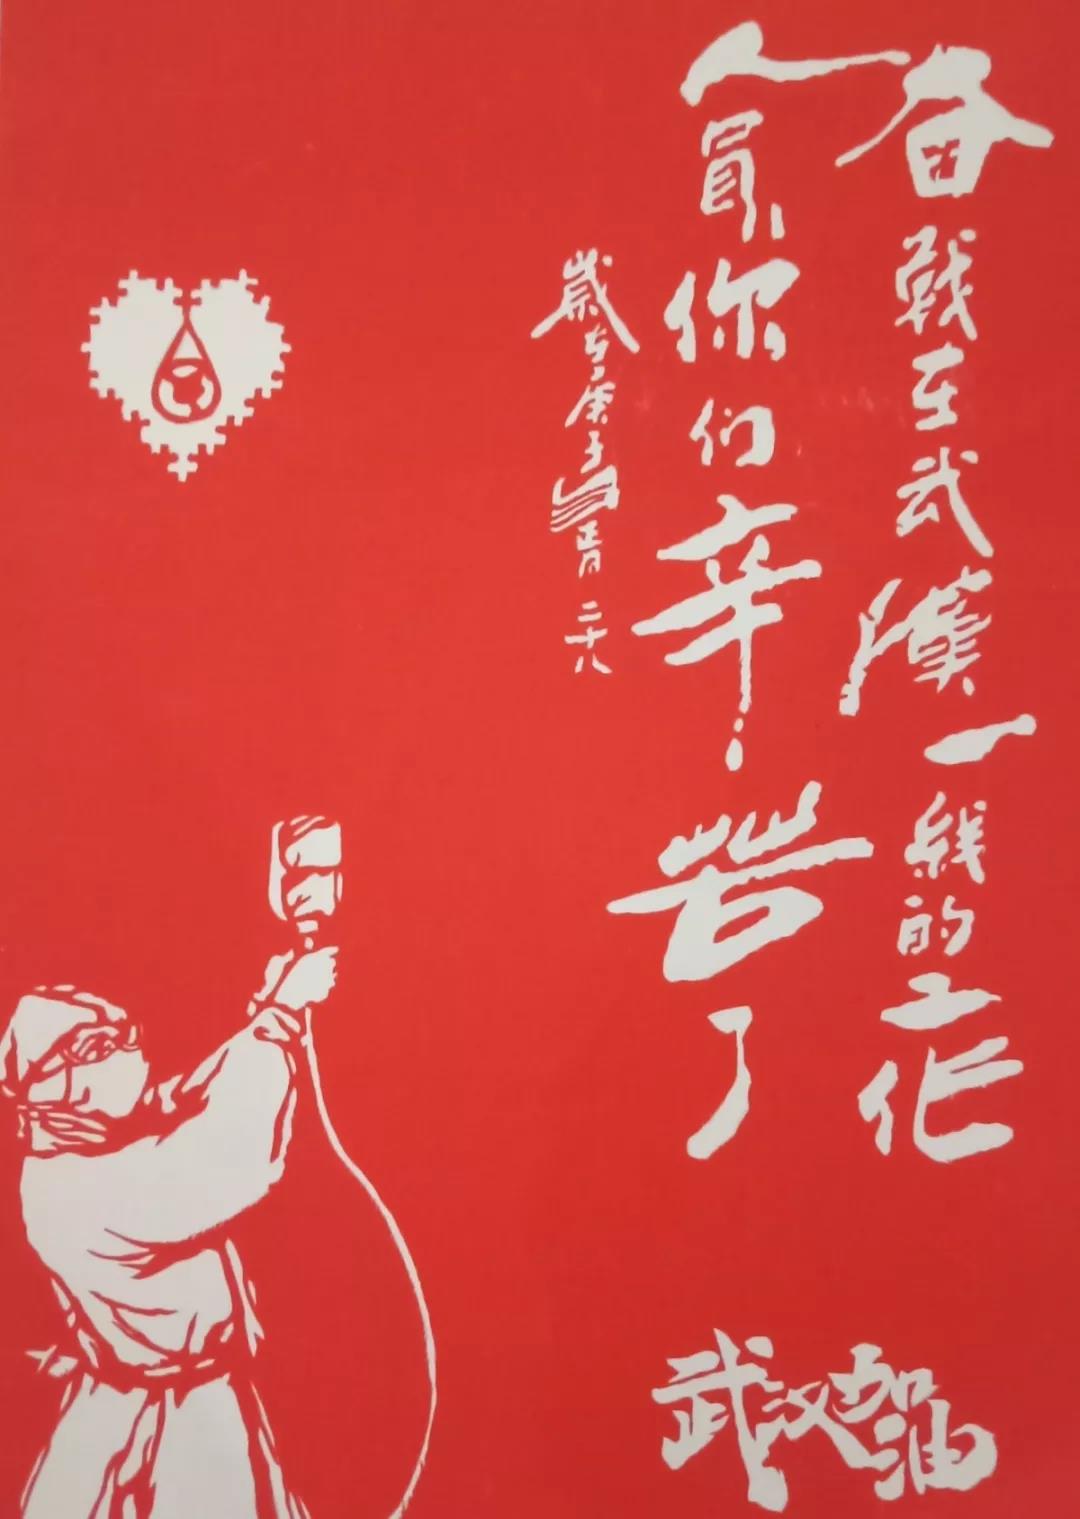 奋战在武漢一线的工作
人員你们辛苦了
庚子
正月二十八
武汉加油